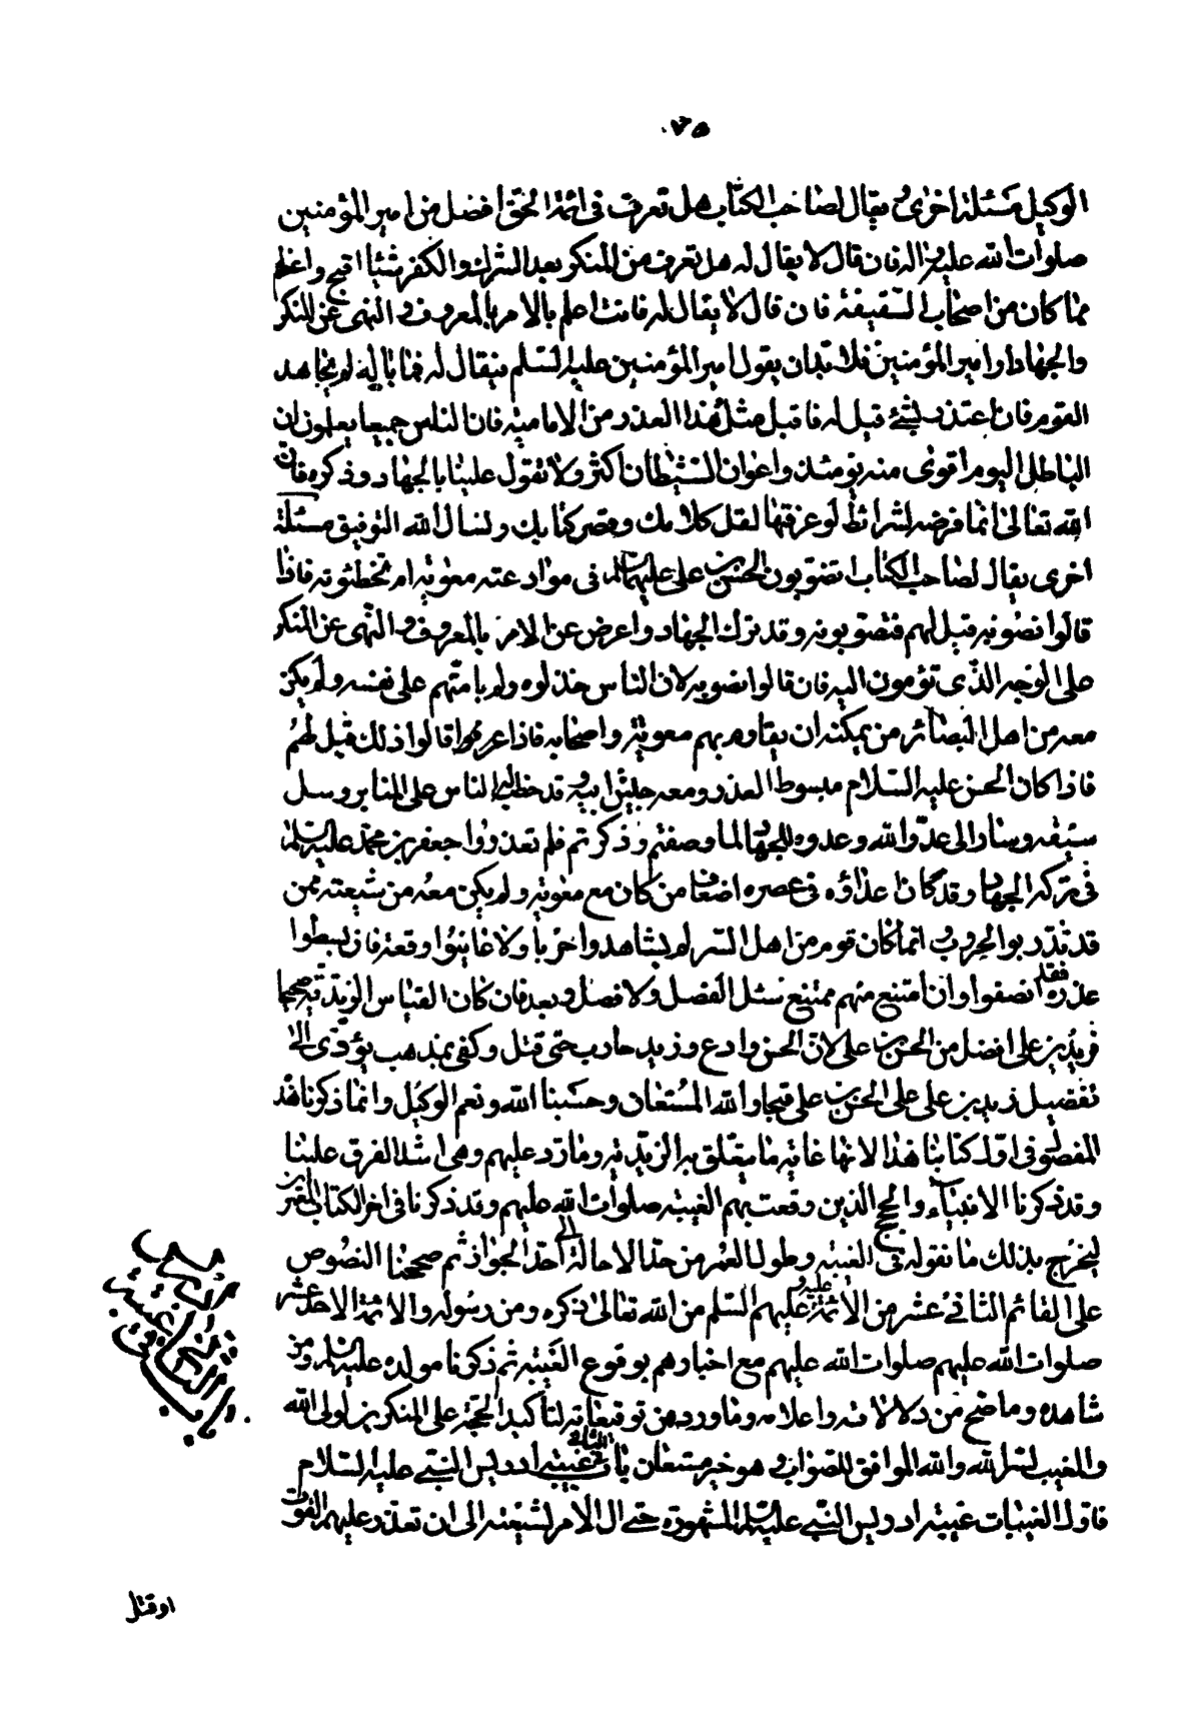 ٧٥
الوكيل مسئلة اخرى و يقال لصاحب الكتاب هل تعرف فى ائمة الحق افضل من امير المؤمنين
صلوات الله عليه و اله فان قال لا يقال له هل تعرف من المنكر بعد الشرك و الكفر شيئا اقبح و اعظم
مما كان من اصحاب السقيفة فان قال لا يقال له فانت اعلم بالامر بالمعروف و النهى عن المنكر
و الجهاد او امير المؤمنين فلا بد ان يقول امير المؤمنين عليه السلم فيقال له فما باله لم يجاهد
القوم فان اعتذر بشئ قيل له فاقبل مثل هذا العذر من الامامية فان الناس جميعا يعلمون ان
الباطل اليوم اقوى منه يومئذ و اعوان الشيطان اكثر و لا تهول علينا بالجهاد و ذكره فان
الله تعالى انما فرضه لشرائط لو عرفتها لقل كلامك و قصر كتابك و نسال الله التوفيق مسئلة
اخرى يقال لصاحب الكتاب اتصوبون الحسن بن على عليهما السلم فى موادعته معوية ام تخطئونه فاذا
قالوا نصوبه قيل لهم فتصوبونه و قد ترك الجهاد و اعرض عن الامر بالمعروف و النهى عن المنكر
على الوجه الذى تؤمون اليه فان قالوا نصوبه لان الناس خذلوه و لم يامنهم على نفسه و لم يكن
معه من اهل البصائر من يمكنه ان يقاوم بهم معوية و اصحابه فاذا عرفوا قالوا ذلك قيل لهم
فاذا كان الحسن عليه السلام مبسوط العذر و معه جيش ابيه و قد خطب له الناس على المنابر و سل
سيفه و سار الى عدو الله و عدوه للجهاد لما وصفتم و ذكرتم فلم تعذروا جعفر بن محمد عليه السلم
فى تركه الجهاد و قد كان اعداؤه فى عصره اضعاف من كان مع معوية و لم يكن معه من شيعته ممن
قد تدربوا الحروب انما كان قوم من اهل السر لم يشاهدوا حربا و لا عاينوا وقعة فان بسطوا
عذره فقد انصفوا و ان امتنع منهم ممتنع سئل الفصل و لا فصل و بعد فان كان القياس الزيدية صحيحا
فزيد بن على افضل من الحسن بن على لان الحسن وادع و زيد حارب حتى قتل و كفى بمذهب يؤدى الى
تفضيل زيد بن على على الحسن بن على قبحا و الله المستعان و حسبنا الله و نعم الوكيل و انما ذكرنا هذه
الفصول فى اول كتابنا هذا لانها غاية ما يتعلق به الزيدية و ما رد عليهم و هى اشد الفرق علينا
و قد ذكرنا الانبياء و الحجج الذين وقعت بهم الغيبة صلوات الله عليهم و قد ذكرنا فى اخر الكتاب المعمرين
ليخرج بذلك ما نقوله فى الغيبة و طول العمر من حد الاحالة الى حد الجواز ثم صححنا النصوص
على القائم الثانى عشر من الائمة عليه و عليهم السلم من الله تعالى ذكره و من رسوله و الائمة الاحد عشر
صلوات الله عليهم مع اخبارهم بوقوع الغيبة ثم ذكرنا مولده عليه السلم و من
شاهده و ما صح من دلالاته و اعلامه و ما ورد من توقيعاته لتاكيد الحجة على المنكرين لولى الله
و المغيب لسر الله و الله الموافق للصواب و هو خير مستعان باب الثانى فى غيبة ادريس النبى عليه السلام
فاول الغيبات غيبة ادريس النبى عليه السلم المشهورة حتى ال الامر لشيعته الى ان تعذر عليهم القوت
او قتل